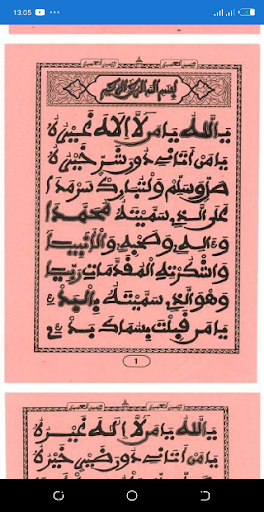 13:05
بسم الله الرحمن الرحيم
يَا اللَّه يَا مَن لَّا إِلَه غَيْرُهُ
يَا مَن أتَانِے دُونَ شَرٍّ خَيْرُهُ
صَلِّ وسلِّم وَلْتُبَارِك سَرْمَدَا
عَلَى الذِے سَمَّيْتَهُ مُحَمَّدَا
وَءَالِهِ وَصَحْبِهِ وَالْأَنْبِيَا
المُقَدَّمَات
وَهْوَ الذِے سَمَّيْتَهُ
يَا مَن قَبِلْتَ
1
يَا اللَّه يَا مَن لَّا إِلَه غَيْرُهُ
يَا مَن أتَانِے دُونَ خَيْرُهُ